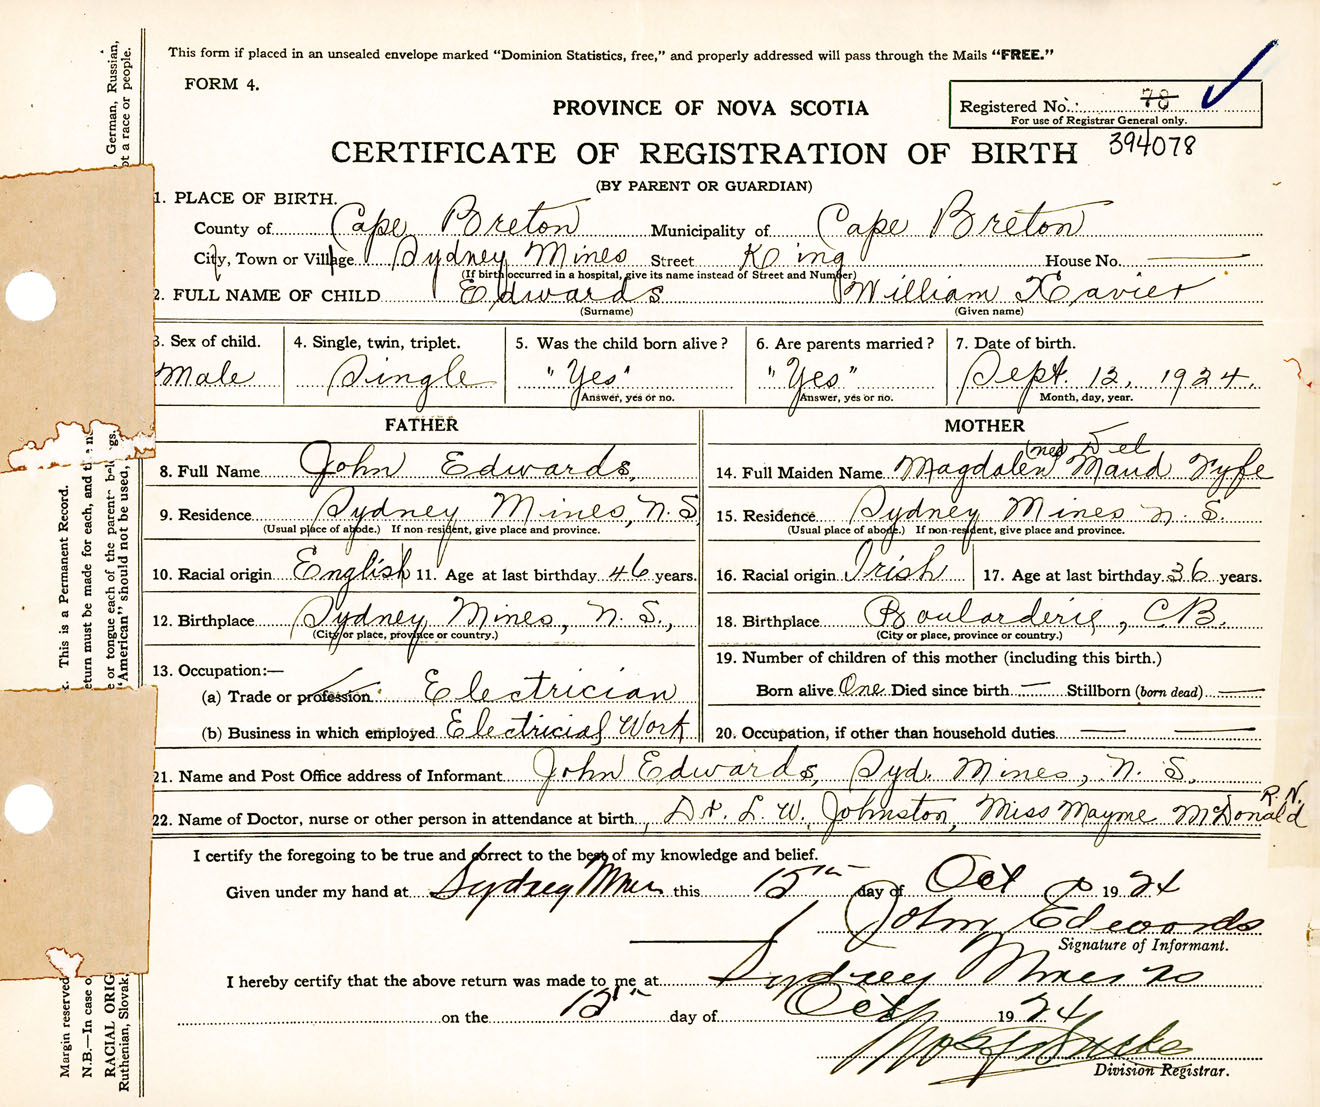 This form if placed in an unsealed envelope marked "Dominion Statistics, free," and properly addressed will pass through the Mails "FREE."
FORM 4.
PROVINCE OF NOVA SCOTIA
Registered No. 78
For use of Registrar General only.
394078
CERTIFICATE OF REGISTRATION OF BIRTH
(BY PARENT OR GUARDIAN)
1. PLACE OF BIRTH.
County of Cape Breton Municipality of Cape Breton
City, Town or Village Sydney Mines Street King House No.
(If birth occurred in a hospital, give its name instead of Street and Number)
2. FULL NAME OF CHILD Edwards William Xavier
(Surname) (Given name)
3. Sex of child. 4. Single, twin, triplet. 5. Was the child born alive? 6. Are parents married? 7. Date of birth.
Male Single "Yes" "Yes" Sept. 12, 1924.
Answer, yes or no. Answer, yes or no. Month, day, year.
FATHER MOTHER
8. Full Name John Edwards, 14. Full Maiden Name Magdalen (nee) Maud Fyfe
9. Residence Sydney Mines, N.S. 15. Residence Sydney Mines N.S.
(Usual place of abode.) If non-resident, give place and province. (Usual place of abode.) If non-resident, give place and province.
10. Racial origin English 11. Age at last birthday 46 years. 16. Racial origin Irish 17. Age at last birthday 36 years.
12. Birthplace Sydney Mines, N.S., 18. Birthplace Boularderie, C.B.
(City or place, province or country.) (City or place, province or country.)
13. Occupation:— 19. Number of children of this mother (including this birth.)
(a) Trade or profession Electrician Born alive One Died since birth — Stillborn (born dead) —
(b) Business in which employed Electrical Work 20. Occupation, if other than household duties — —
21. Name and Post Office address of Informant John Edwards, Syd. Mines, N.S.
22. Name of Doctor, nurse or other person in attendance at birth, Dr. L. W. Johnston, Miss Mayme McDonald R.N.
I certify the foregoing to be true and correct to the best of my knowledge and belief.
Given under my hand at Sydney Mines this 15th day of Oct 1924
John Edwards
Signature of Informant.
I hereby certify that the above return was made to me at Sydney Mines NS
on the 15th day of Oct 1924
Division Registrar.
Margin reserved
This is a Permanent Record.
N.B.—In case o
eturn must be made for each, and the n
RACIAL ORIG
e or tongue each of the parent belongs.
German, Russian,
Ruthenian, Slovak
"American" should not be used,
ot a race or people.